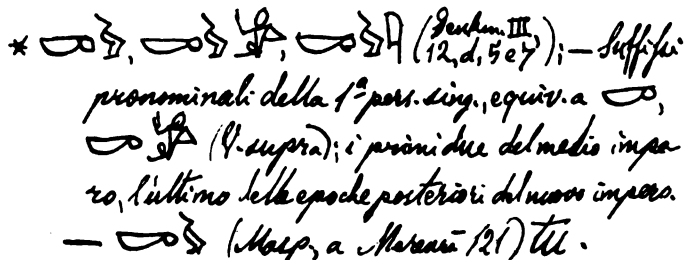 * 𓎡𓅱, 𓎡𓅱𓀀, 𓎡𓅱𓇋 (Denkm. III, 12, d, 5 e 7); — Suffissi
pronominali della 1ª pers. sing., equiv. a 𓎡,
𓎡𓀀 (V. supra); i primi due del medio impe
ro, l'ultimo delle epoche posteriori del nuovo impero.
— 𓎡𓅱 (Masp., a 121)